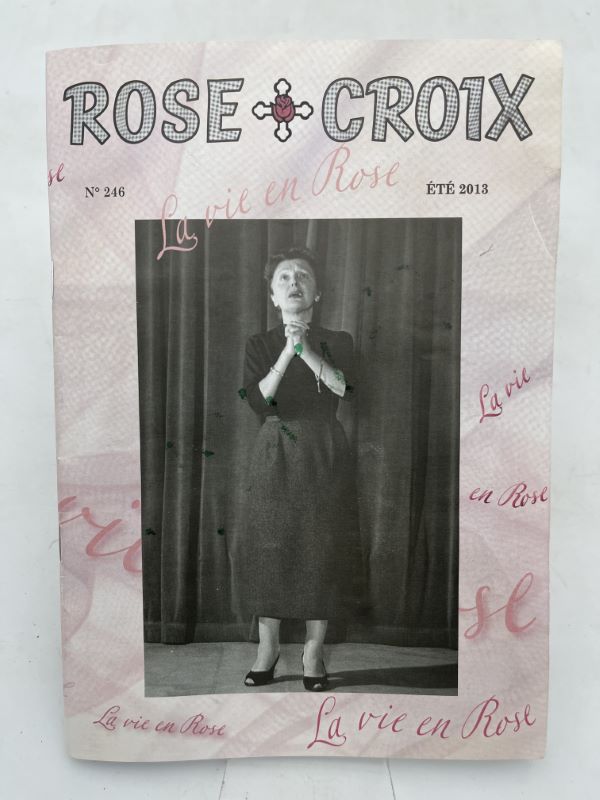 ROSE CROIX
se
N° 246
La vie en Rose
ÉTÉ 2013
La vie
en Rose
vie
se
La vie en Rose
La vie en Rose